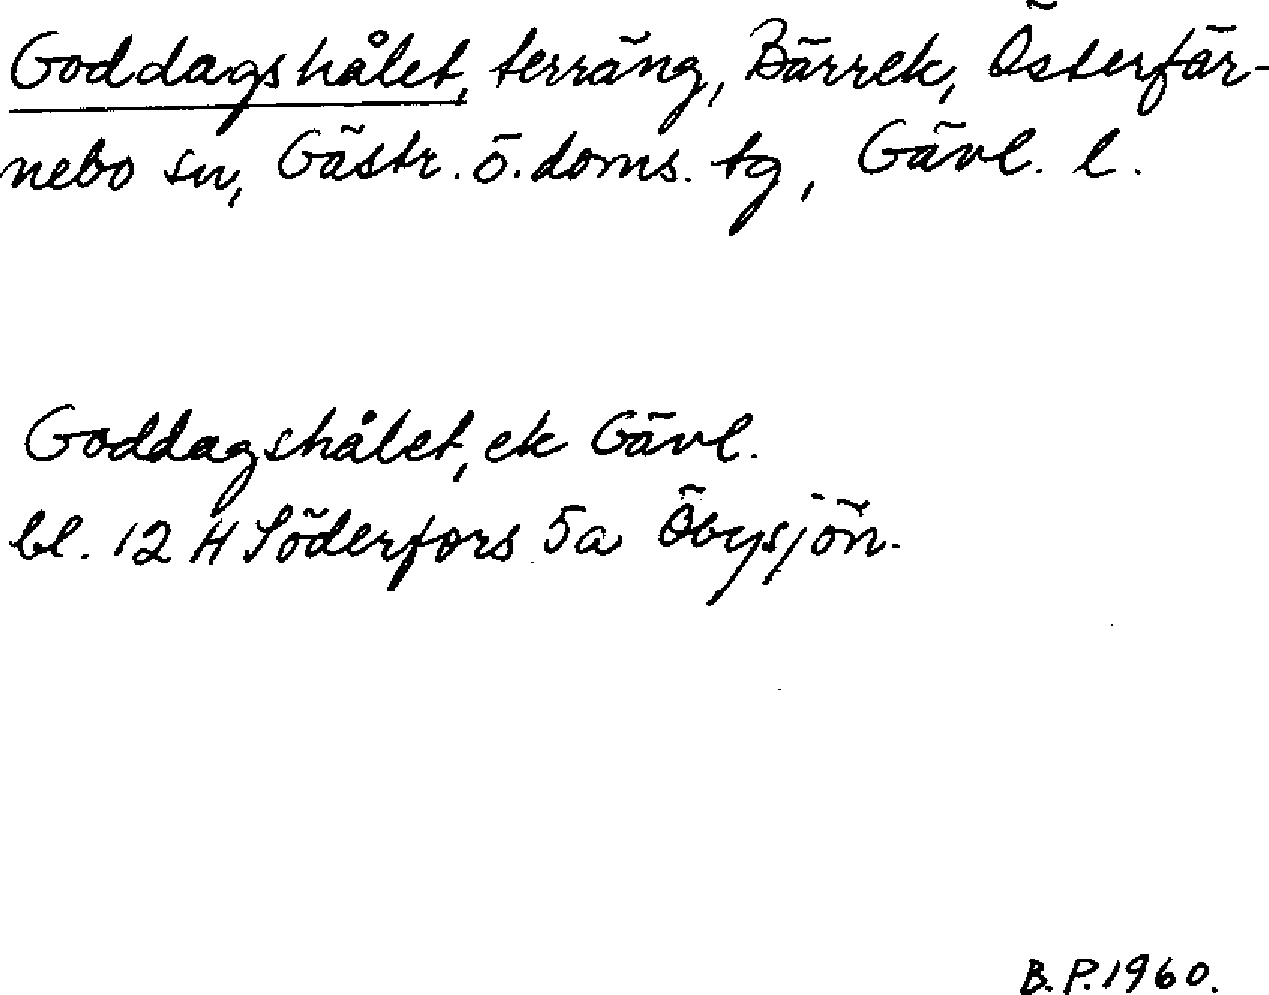 Goddagshålet, terräng, Bärrek, Österfär-
nebo sn, Gästr. ö. doms. tg, Gävl. l.
Goddagshålet, ek Gävl.
bl. 12 H Söderfors 5a Öbysjön.
B.P. 1960.